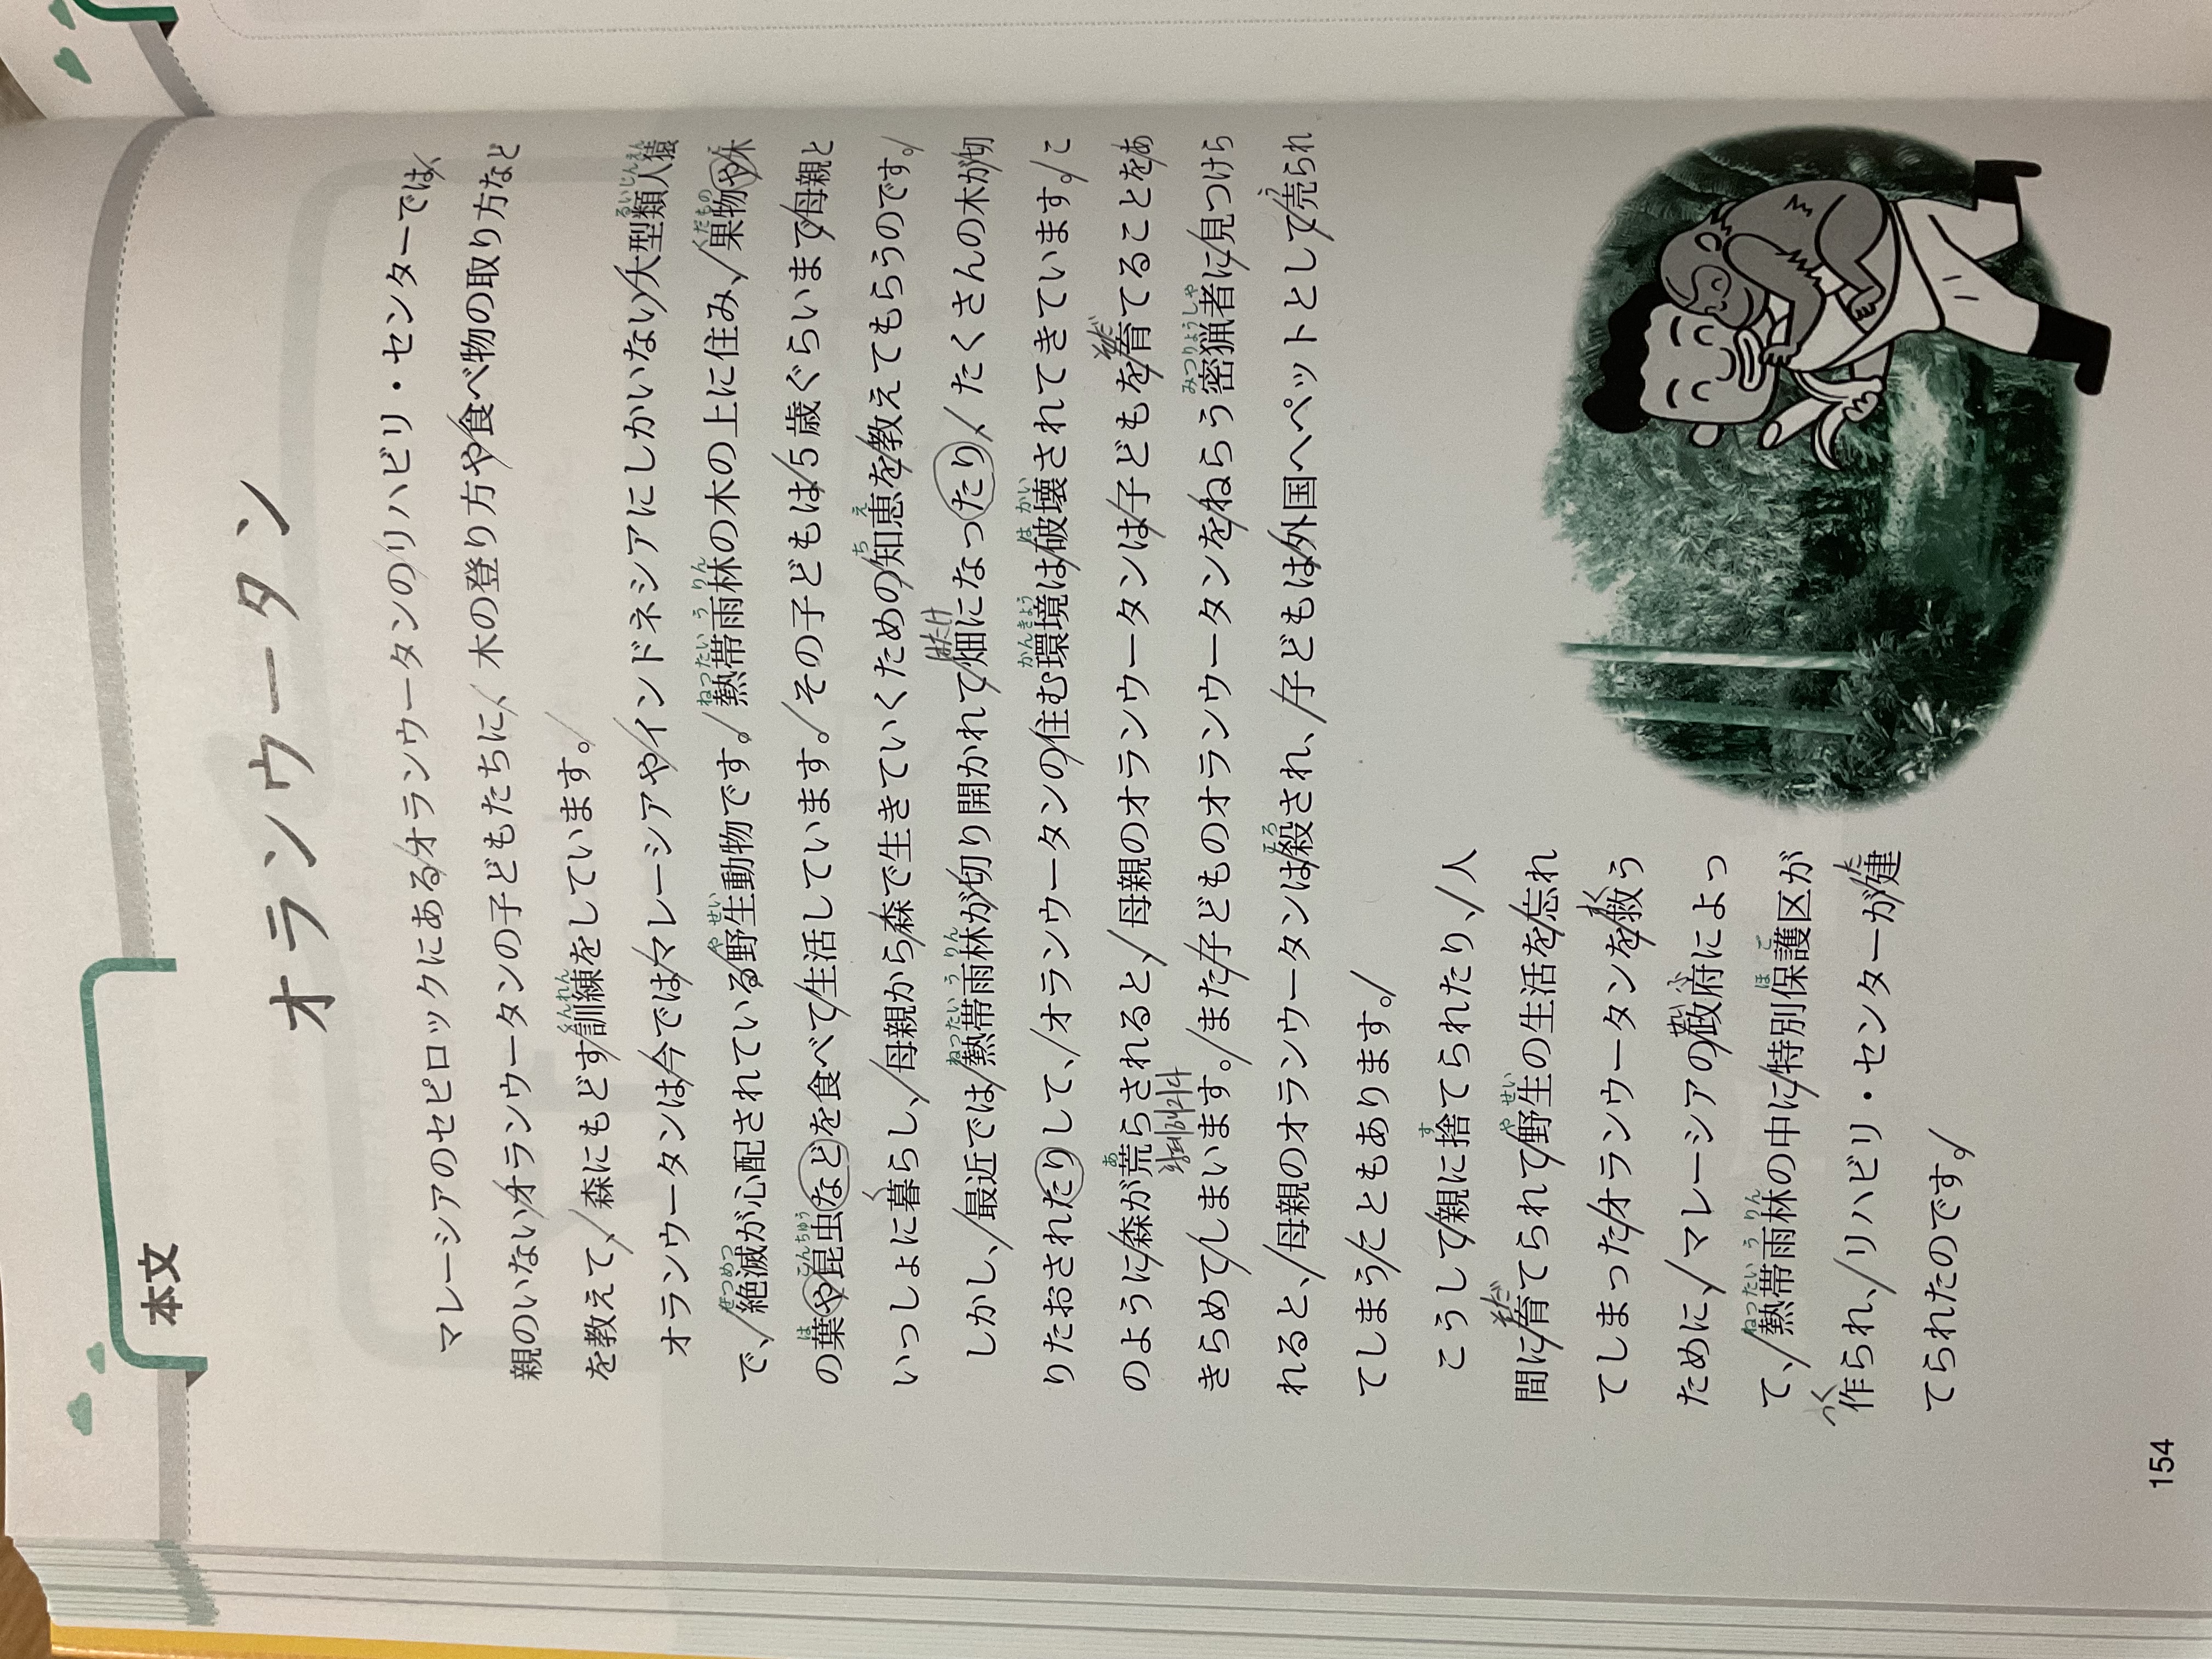 本文
オランウータン
マレーシアのセピロックにあるオランウータンのリハビリ・センターでは、
親のいないオランウータンの子どもたちに、木の登り方や食べ物の取り方など
を教えて、森にもどす訓練をしています。
オランウータンは今ではマレーシアやインドネシアにしかいない大型類人猿
で、絶滅が心配されている野生動物です。熱帯雨林の木の上に住み、果物や木
の葉や昆虫などを食べて生活しています。その子どもは5歳ぐらいまで母親と
いっしょに暮らし、母親から森で生きていくための知恵を教えてもらうのです。
しかし、最近では熱帯雨林が切り開かれて畑になったり、たくさんの木が切
りたおされたりして、オランウータンの住む環境は破壊されてきています。こ
のように森が荒らされると、母親のオランウータンは子どもを育てることをあ
きらめてしまいます。また子どものオランウータンをねらう密猟者に見つけら
れると、母親のオランウータンは殺され、子どもは外国へペットとして売られ
てしまうこともあります。
こうして親に捨てられたり、人
間に育てられて野生の生活を忘れ
てしまったオランウータンを救う
ために、マレーシアの政府によっ
て、熱帯雨林の中に特別保護区が
作られ、リハビリ・センターが建
てられたのです。
154